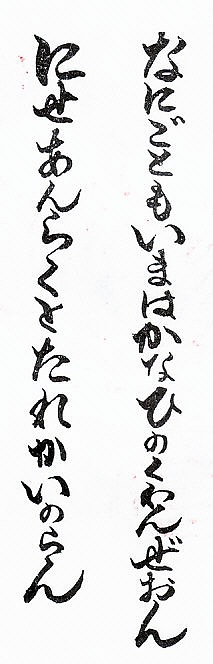 なにごともいまはかなひのくわんぜおん
にせあんらくとたれかいのらん